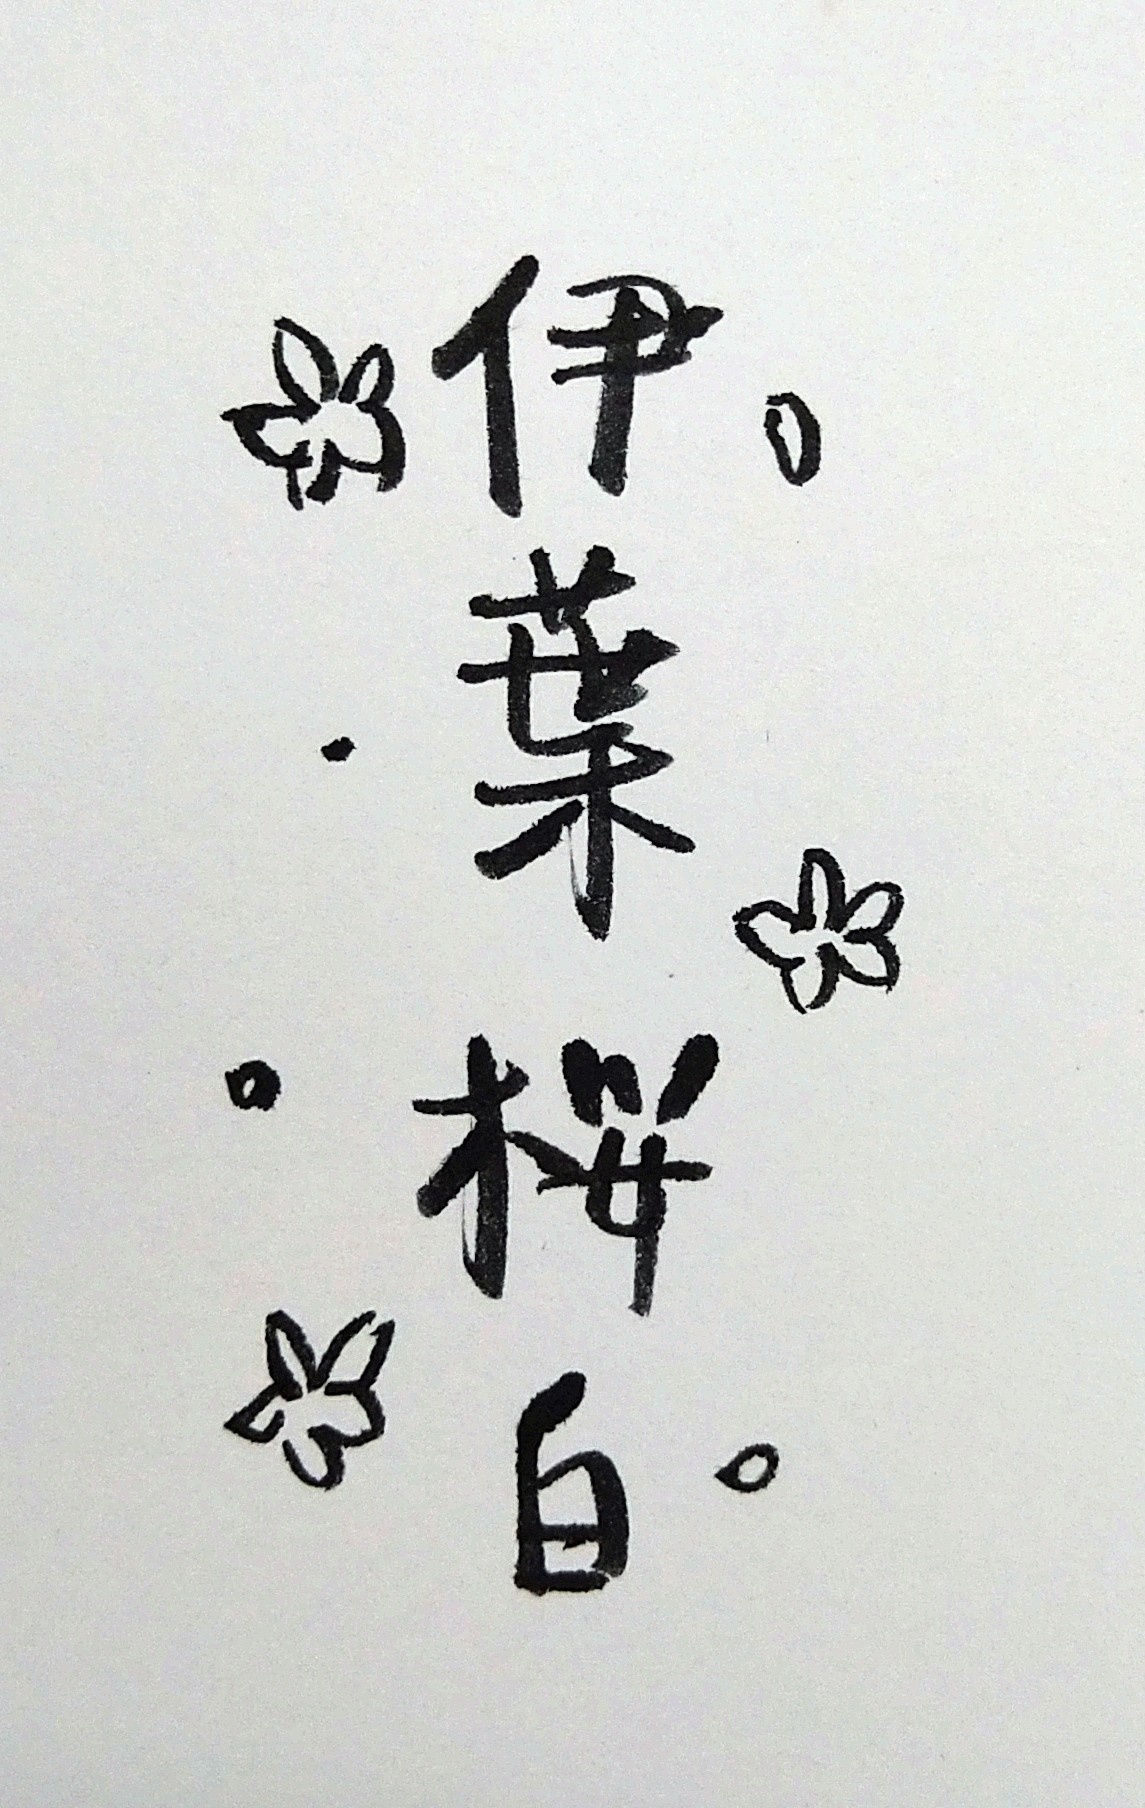 伊葉桜白